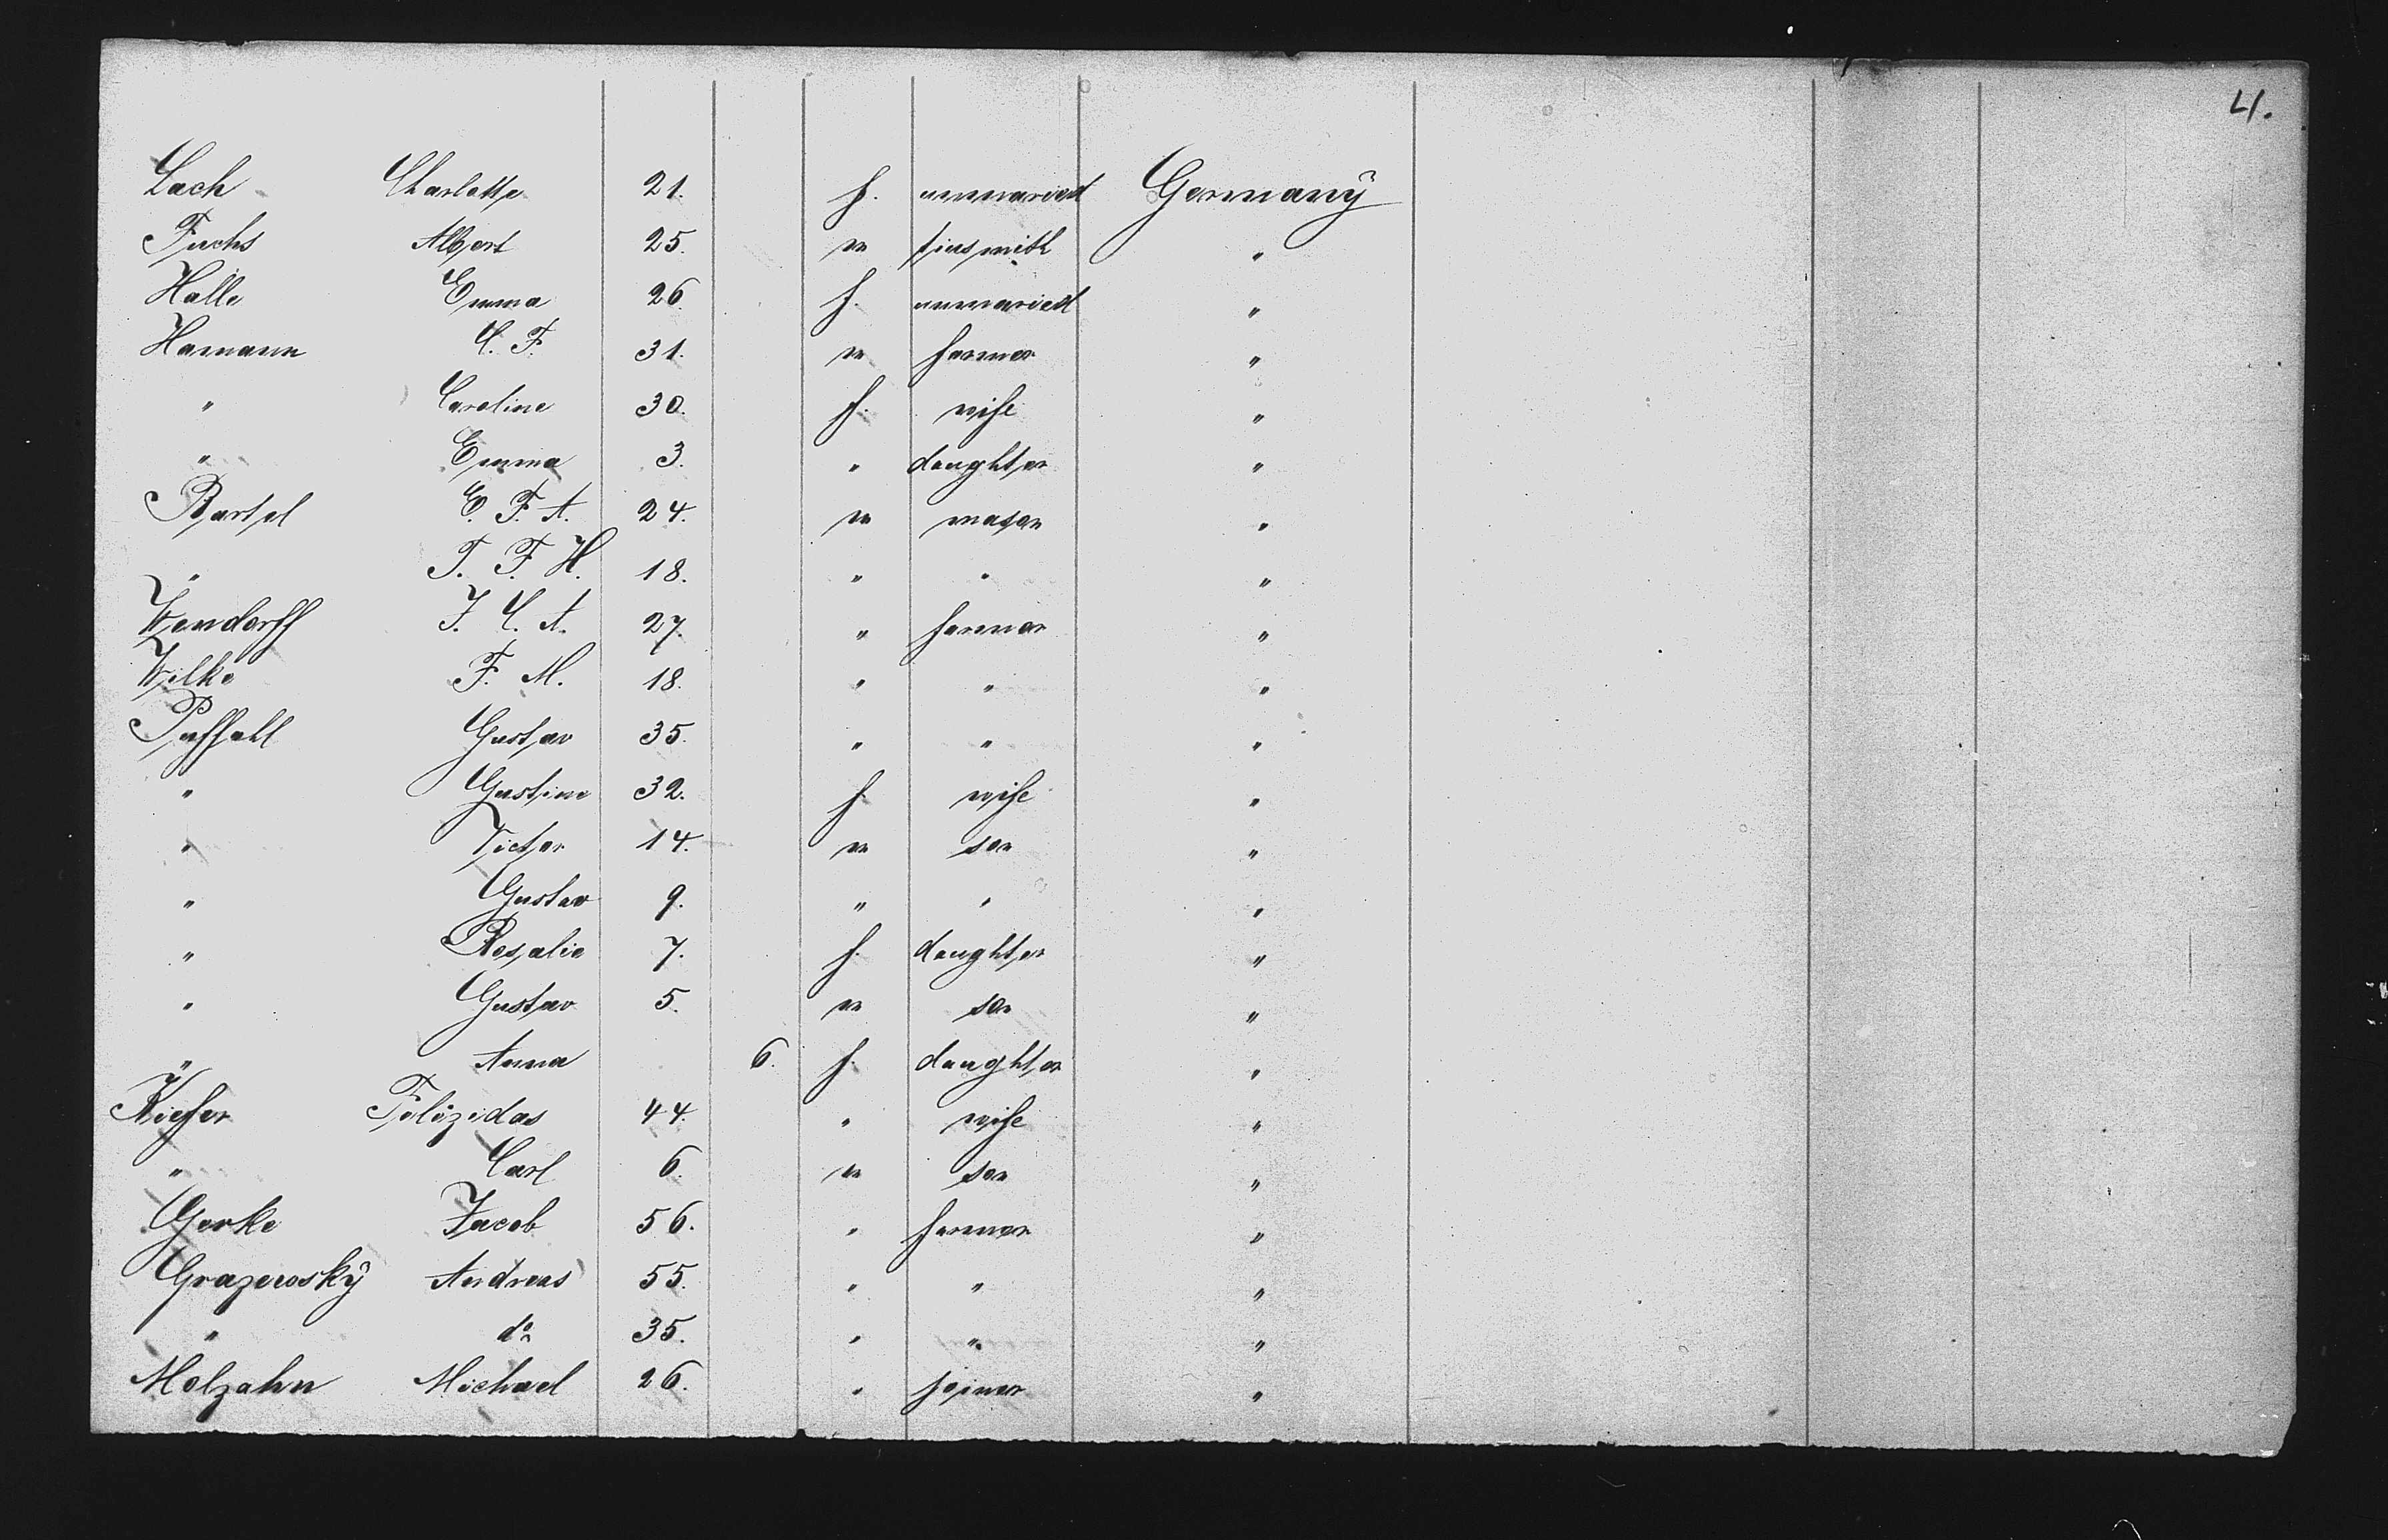 4.
Lach Charlotte 21. f. unmaried Germany
Fuchs Albert 25. m tinsmith "
Halle Emma 26. f. unmaried "
Hamann C. F. 31. m farmer "
" Caroline 30. f. wife "
" Emma 3. " daughter "
Bartel E. F. A. 24. m mason "
" T. F. H. 18. " " "
Wendorff J. C. A. 27. " farmer "
Wilke F. M. 18. " " "
Puffahl Gustav 35. " " "
" Gustine 32. f. wife "
" Victor 14. m son "
" Gustav 9. " " "
" Rosalie 7. f. daughter "
" Gustav 5. m son "
" Anna 6. f. daughter "
Kiefer Felizidas 44. " wife "
" Carl 6. m son "
Gerke Jacob 56. " farmer "
Grazewosky Andreas 55. " " "
" do 35. " " "
Molzahn Michael 26. " joiner "